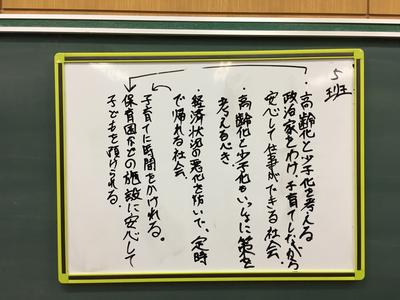 5班
・高齢化と少子化を考える
政治家をわけ、子育てしながら
安心して仕事ができる社会。
・高齢化と少子化もいっしょに策を
考えるべき。
・経済状況の悪化を防いで、定時
で帰れる社会。
子育てに時間をかけれる。
保育園などの施設に安心して
子どもを預けられる。